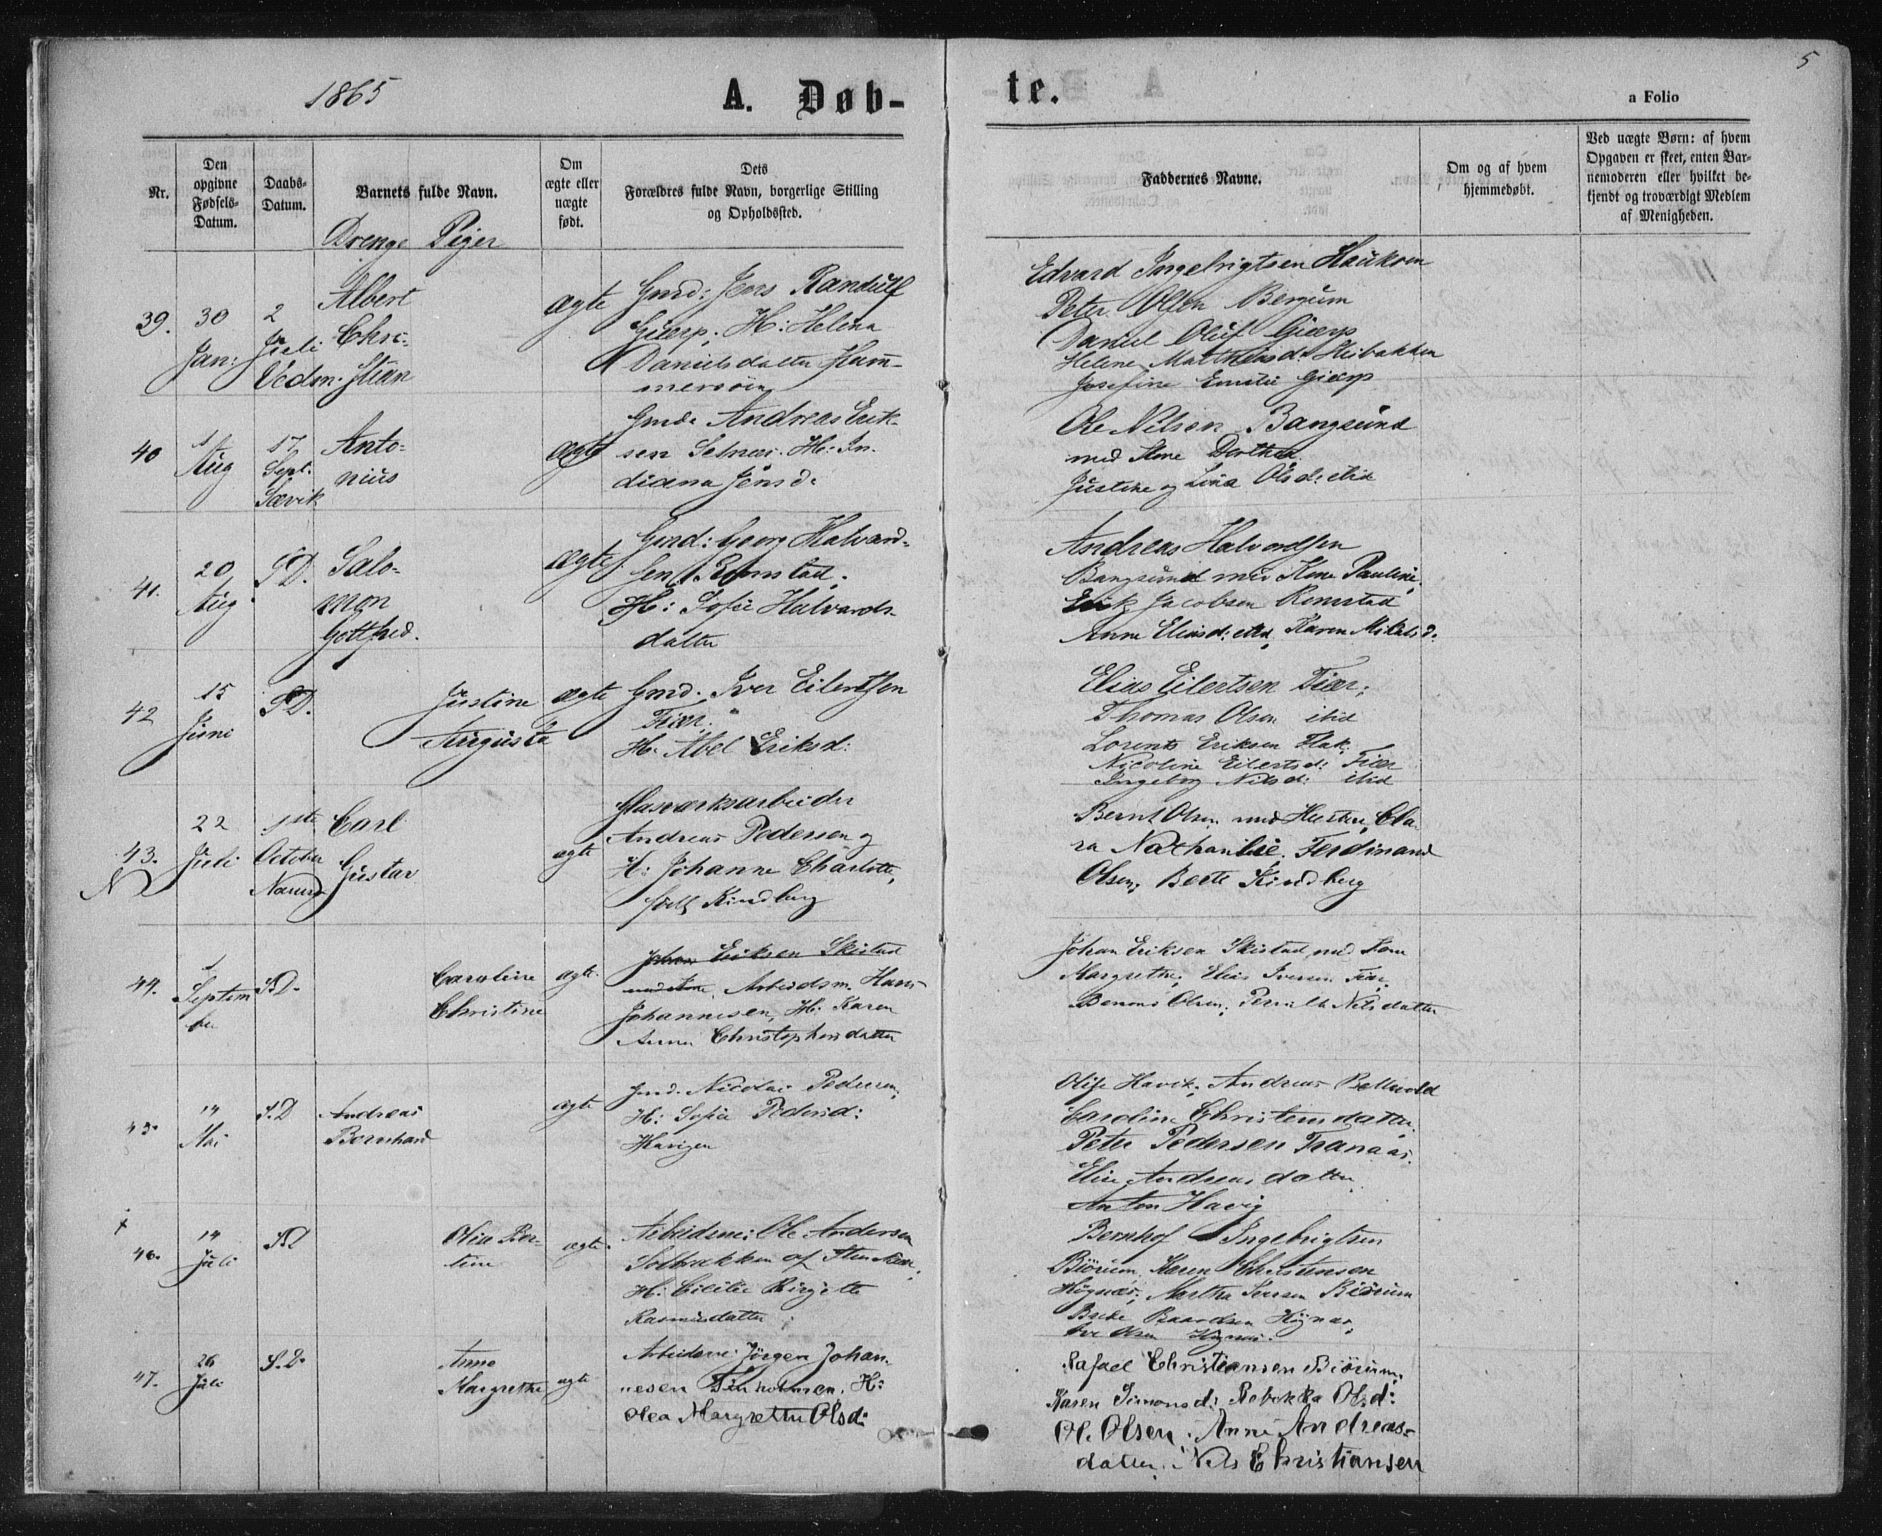 1865
A. Døb-
te.
5
a Folio
Nr.
Den opgivne Fødsels-Datum.
Daabs-Datum.
Barnets fulde Navn.
Om ægte eller uægte født.
Dets
Forældres fulde Navn, borgerlige Stilling
og Opholdssted.
Faddernes Navne.
Om og af hvem
hjemmedøbt.
Ved uægte Børn: af hvem
Opgaven er skeet, enten Bar-
nemoderen eller hvilket be-
kjendt og troværdigt Medlem
af Menigheden.
Drenge Piger
39.
30
Jan:
2
Juli
Vedsm.
Albert
Chri-
stian
ægte
Gmd: Jens Randulf
Giærp, H: Helena
Danielsdatter Ham-
merøien
Edvard Ingebrigtsen
Peter Olsen Bergum
Daniel Oluf Giærp
Helene Mathiasd. Heibakken
Josefine Emilie Giærp
40
1
Aug
17
Sept.
Sævik
Anto-
nius
ægte
Gmd: Andreas Erik-
sen Selnæs. H: In-
diana Jensd:
Ole Nilsen Bangsund
med Kone Dorthea
Justine og Lina Olsd: itid
41.
20
Aug
S.D.
Salo-
mon
Gottfred.
ægte
Gmd: Georg Halvard-
sen Romstad.
H: Sofie Halvards
datter
Andreas Halvordsen
Bangsund med Kone Pauline,
Erik Jacobsen Romstad
Anne Eliasd: itid, Karen Mikalsd.
42
15
Juni
S.D.
Justine
Augusta
ægte
Gmd. Iver Eilertsen
Fiær.
H: Abel Eriksd:
Elias Eilertsen Fiær;
Thomas Olsen itid
Lorents Eriksen Flak;
Nicoline Eilertsd: Fiær
Ingebor Nilsd: itid
43.
22
Juli
1ste
October
Namsos
Carl
Gustav
ægte
Glasværksarbeider
Andreas Pedersen og
H: Johanne Charlotte,
født Kindberg
Bernt Olsen med Hustru, Cla-
ra Nathanlie, Ferdinand
Olsen, Berte Kindberg
44.
1
Septem
ber
S.D.
Caroline
Christine
ægte.
Johan Eriksen Skistad
med Kone, Arbeidsm. Hans
Johannesen, H: Karen
Anna Christophersdatter
Johan Eriksen Skistad med Kone
Margrethe; Elias Iversen Fiær,
Benoni Olsen; Pernille Nilsdatter
45
14
Mai
S.D
Andreas
Bernhard
ægte
Gmd. Nicolai Pedersen,
H: Sofie Pedersd:
Havigen
Havik; Andreas
Caroline Christensdatter,
Peter Pedersen Tranaas.
Elise Andreasdatter
Anton Havig
46.
14
Juli
S.D
Olia Ber-
tine
ægte.
Arbeidsm: Ole Andersen
Solbakken af Stenkiær,
H: Cicilie Birgitte
Rasmusdatter
Bernhof Ingebrigtsen
Biörum, Karen Christensen
Högnæs; Martha Iversen Biörum
Baardsen Högnæs,
Olsen Högnæs.
47.
26
Juli
S.D.
Anne
Margrethe
ægte
Arbeidsm: Jörgen Johan-
nesen H:
Olea Margrethe Olsd:
Rafael Christiansen Biörum,
Karen Simonsd: Rebekka Olsd:
Ole Olsen. Anne Andreas-
datter, Nels Christiansen